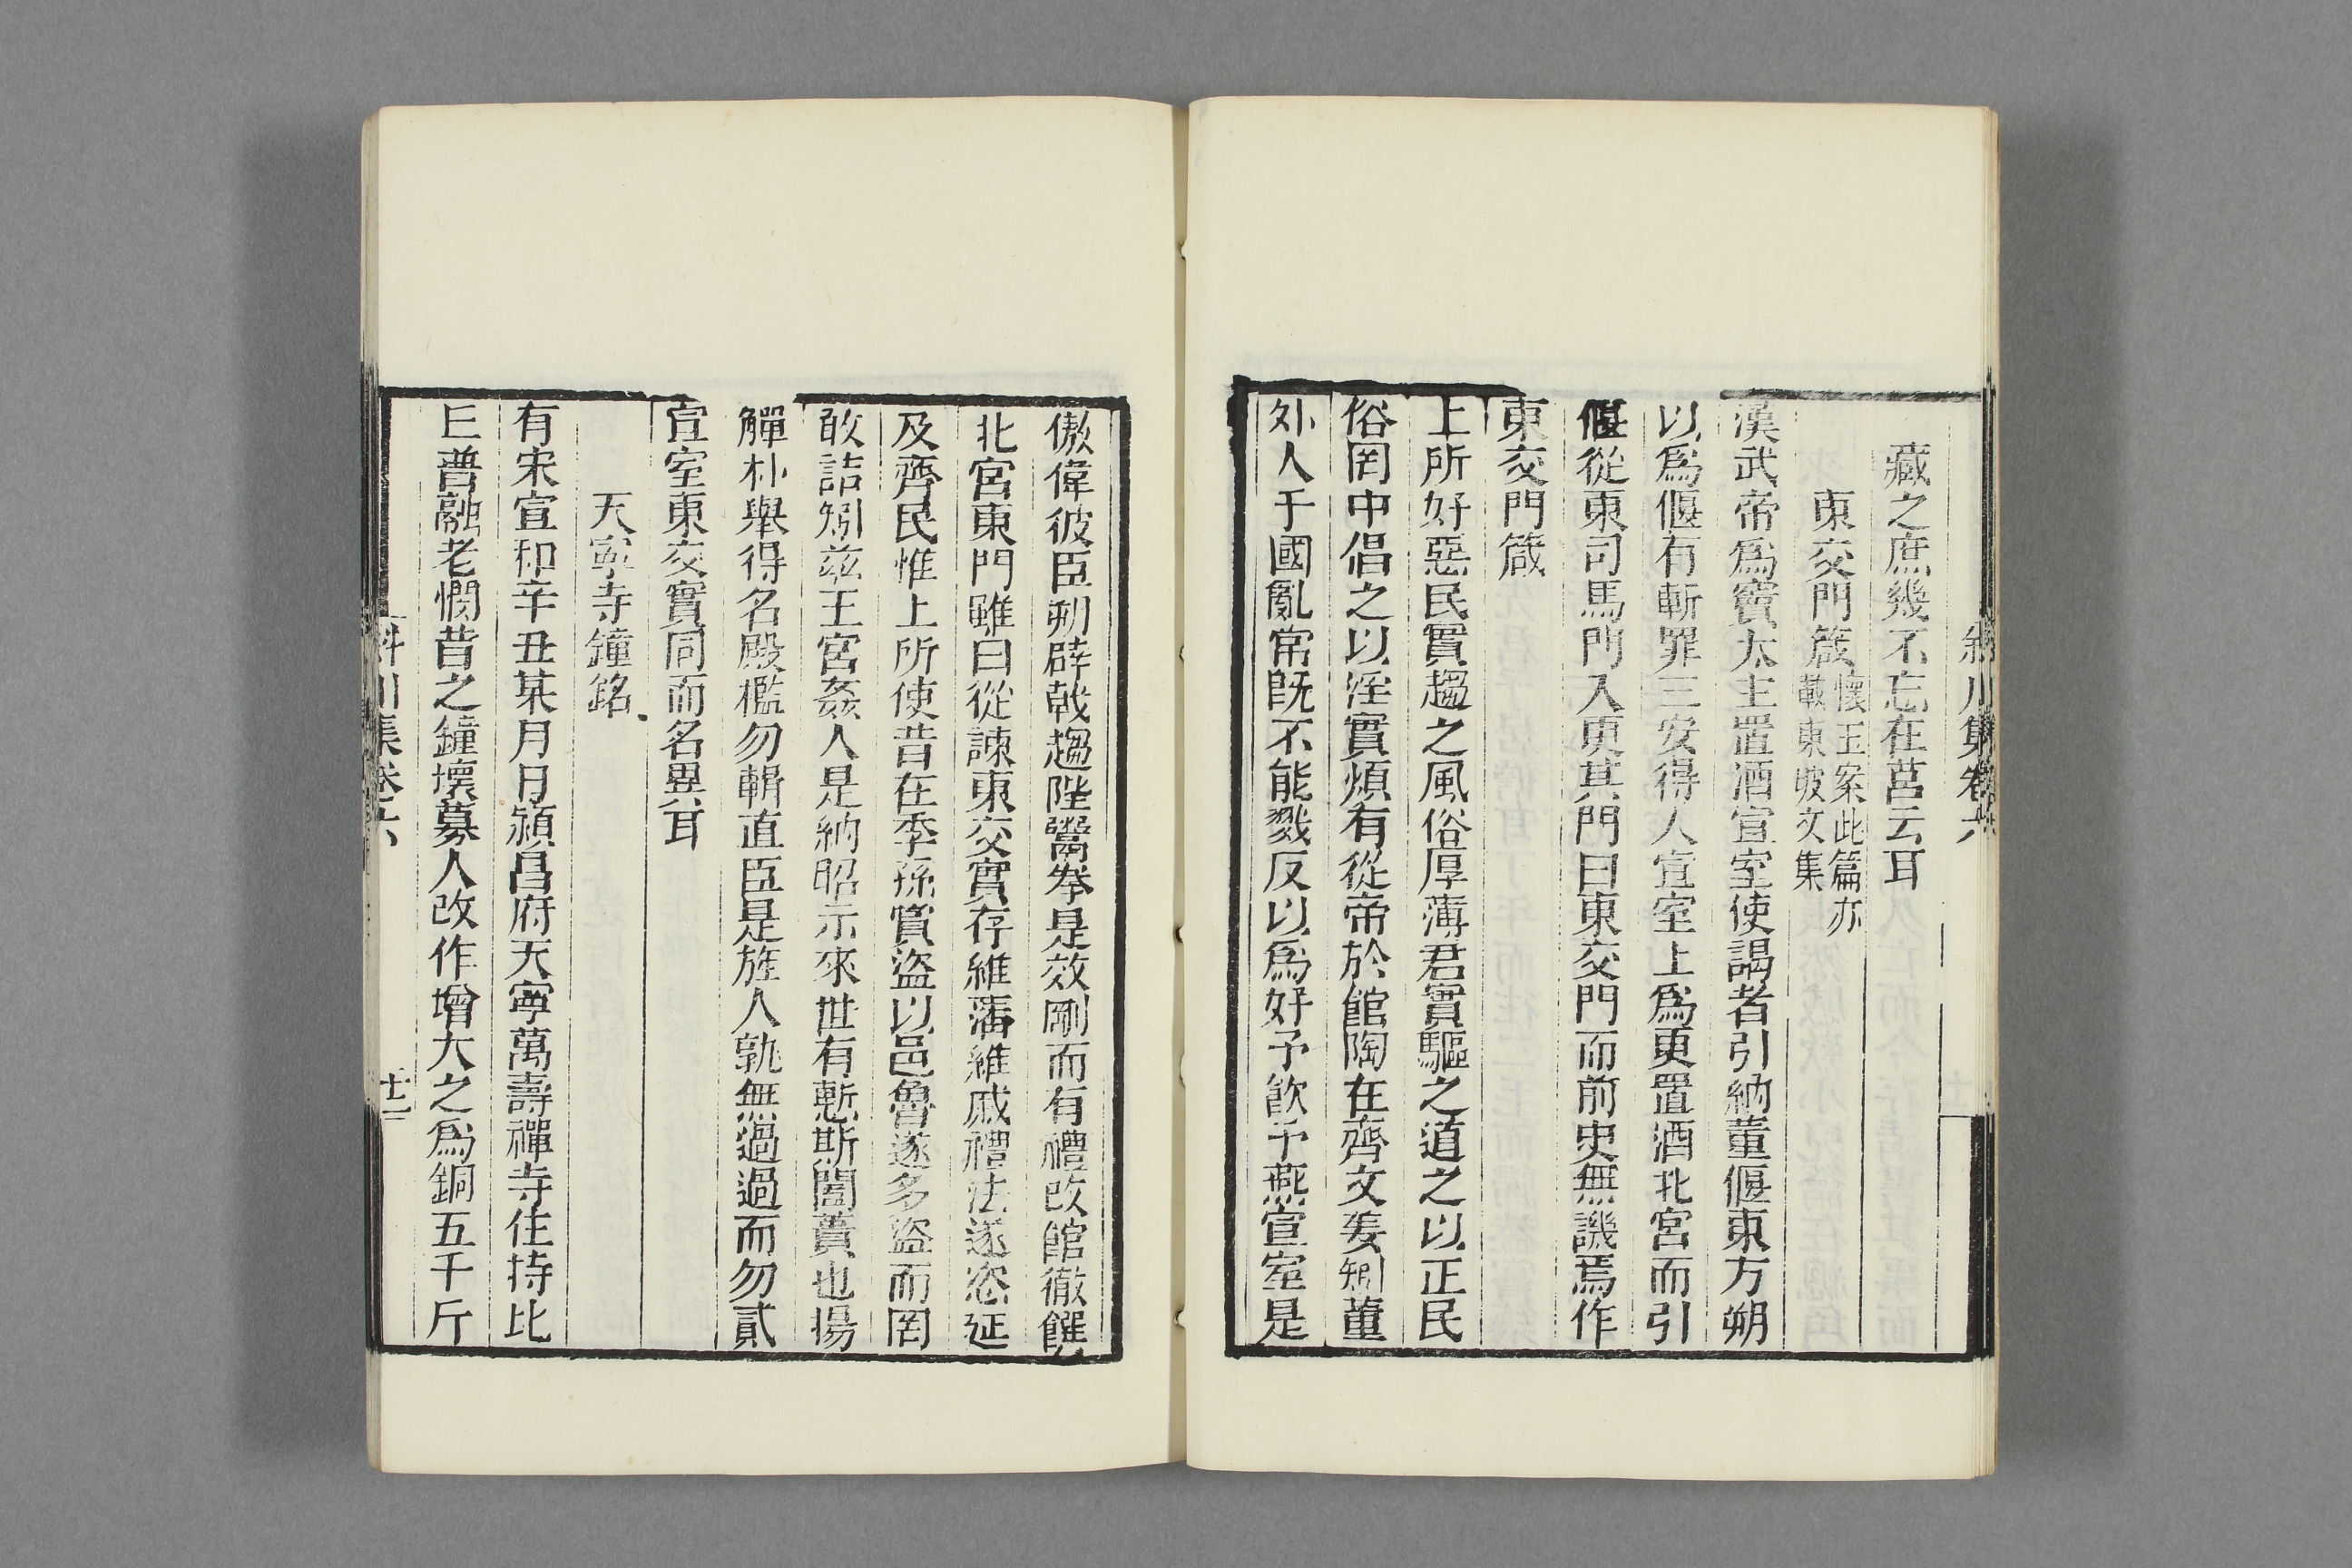 斜川集卷六
藏之庶幾不忘在莒云耳
東交門箴懷玉案此篇亦載東坡文集
漢武帝爲竇太主置酒宣室使謁者引納董偃東方朔
以爲偃有斬罪三安得人宣室上爲更置酒北宮而引
偃從東司馬門入更其門曰東交門而前史無譏焉作
東交門箴
上所好惡民實趨之風俗厚薄君實驅之道之以正民
俗罔中倡之以淫實煩有從帝於館陶在齊文姜矧董
外人干國亂常旣不能戮反以爲好予飮予燕宣室是
傲偉彼臣朔辟戟趨陛鬻拳是效剛而有禮改館徹饌
北宮東門雖曰從諫東交實存維藩維戚禮法遂恣延
及齊民惟上所使昔在季孫賞盜以邑魯遂多盜而罔
敢詰矧兹王宮姦人是納昭示來世有慙斯闔蕢也揚
觶朴舉得名殿檻勿輯直臣是旌人孰無過過而勿貳
宣室東交實同而名異耳
天寧寺鐘銘
有宋宣和辛丑某月日潁昌府天寧萬壽禪寺住持比
曰普融老憫昔之鐘壞募人改作增大之爲銅五千斤
斜川集卷六
十二